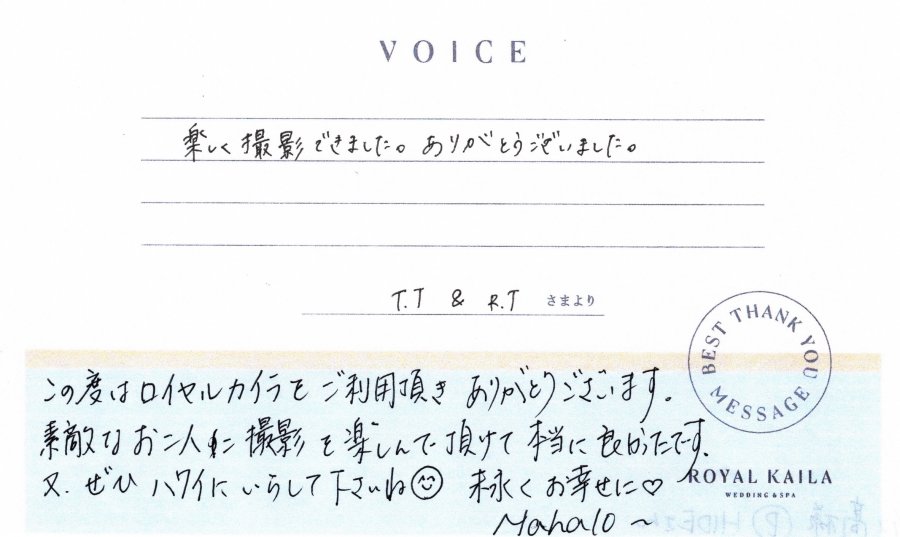 VOICE
楽しく撮影できました。ありがとうございました。
T.T & R.T さまより
BEST THANK YOU MESSAGE
この度はロイヤルカイラをご利用頂き ありがとうございます。
素敵なお二人に撮影を楽しんで頂けて本当に良かったです。
又、ぜひ ハワイに いらして下さいね☺ 末永くお幸せに♡
ROYAL KAILA
WEDDING & SPA
Mahalo ~